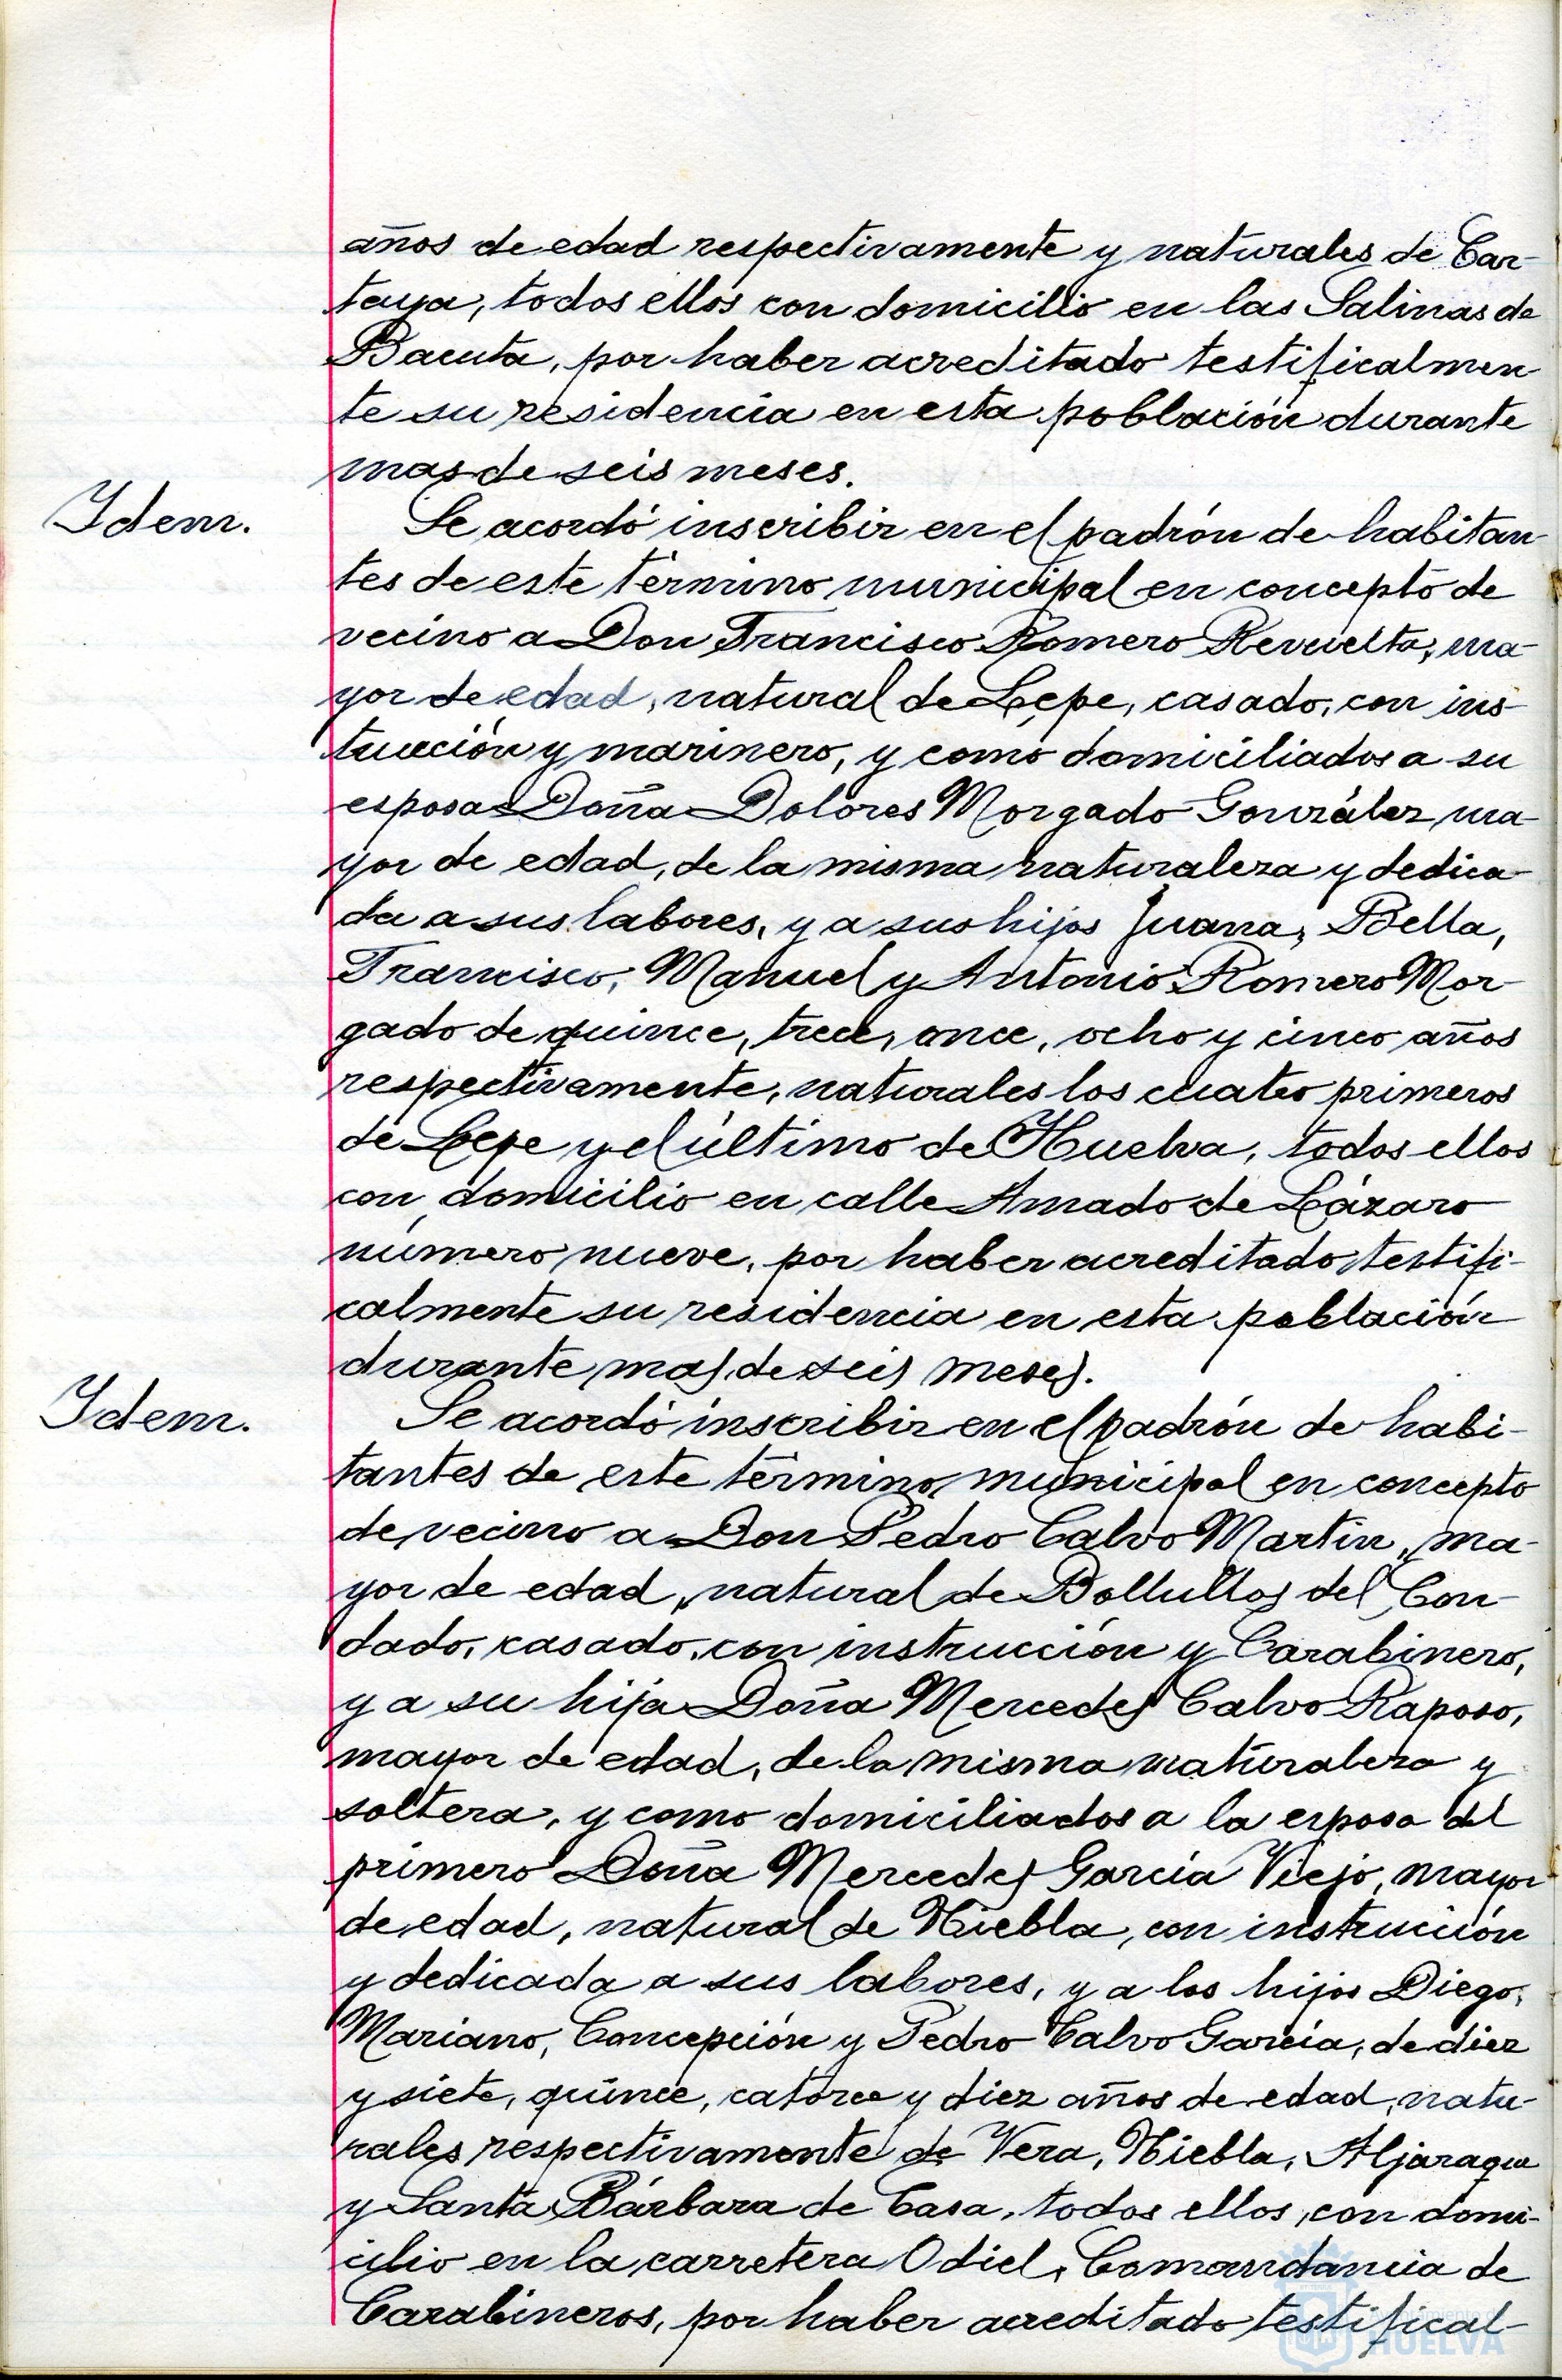 años de edad respectivamente y naturales de Car-
taya, todos ellos con domicilio en las Salinas de
Bacuta, por haber acreditado testificalmen
te su residencia en esta población durante
mas de seis meses.
Idem.
Se acordó inscribir en el padrón de habitan-
tes de este término municipal en concepto de
vecino a Don Francisco Romero Revuelta, ma-
yor de edad, natural de Lepe, casado, con ins-
tucción y marinero, y como domiciliados a su
esposa Doña Dolores Morgado González ma-
yor de edad, de la misma naturaleza y dedica-
da a sus labores, y a sus hijos Juana, Bella,
Francisco, Manuel y Antonio Romero Mor-
gado de quince, trece, once, ocho y cinco años
respectivamente, naturales los cuatro primeros
de Lepe y el último de Huelva, todos ellos
con domicilio en calle Amado de Lázaro
número nueve, por haber acreditado testifi-
calmente su residencia en esta población
durante mas de seis meses.
Idem.
Se acordó inscribir en el padrón de habi-
tantes de este término municipal en concepto
de vecino a Don Pedro Calvo Martin, ma-
yor de edad, natural de Bollullos del Con-
dado, casado, con instrucción y Carabinero,
y a su hija Doña Mercedes Calvo Raposo,
mayor de edad, de la misma naturaleza y
soltera, y como domiciliados a la esposa del
primero Doña Mercedes García Viejo, mayor
de edad, natural de Niebla, con instrucción
y dedicada a sus labores, y a los hijos Diego,
Mariano, Concepción y Pedro Calvo García, de diez
y siete, quince, catorce y diez años de edad, natu-
rales respectivamente de Vera, Niebla, Aljaraque
y Santa Bárbara de Casa, todos ellos, con domi-
cilio en la carretera Odiel, Comandancia de
Carabineros, por haber acreditado testifical-
HUELVA